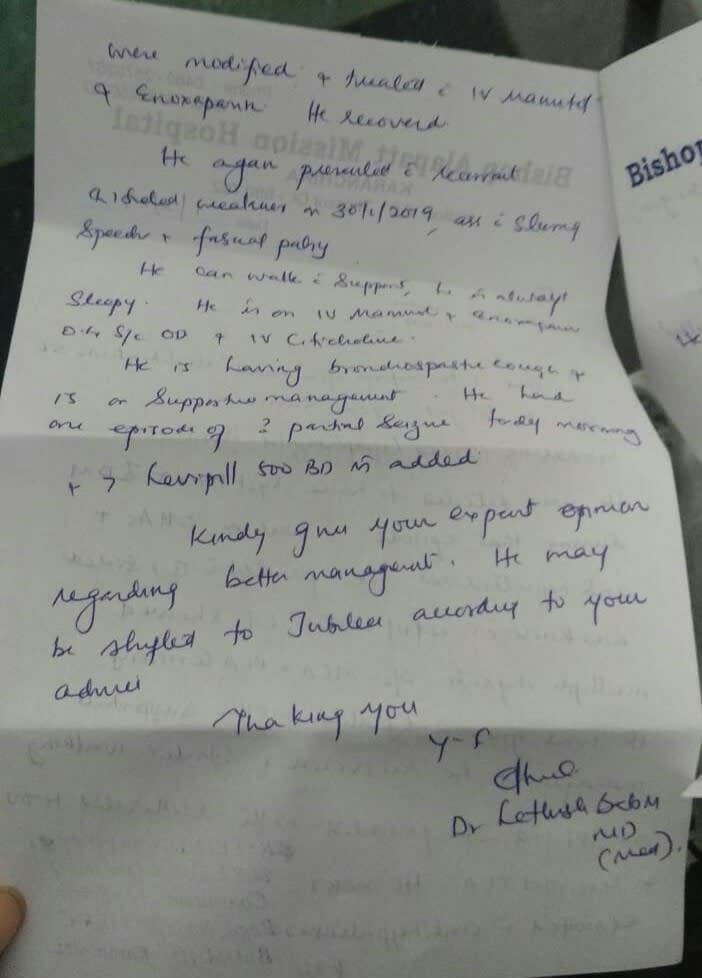 were modified & treated c̄ IV Mannitol
& Enoxaparin. He recoverd
He again presented c̄ recurrent
sided weakness on 30/1/2019, ass c̄ Slurring
Speech + facial palsy
He can walk c̄ Support, he is always
Sleepy. He is on IV Mannitol + Enoxaparin
0.4 S/c OD + IV Citicholine.
He is having bronchospastic cough &
is on Supportive management. He had
one episode of ? partial Seizure today morning
+ > Levipill 500 BD is added
Kindly give your expert opinion
regarding better management. He may
be shifted to Jubilee according to your
advice
Thaking you
Y-f
Dr
MD
(Med).
Bishop
Bishop Alapatt Mission Hospital